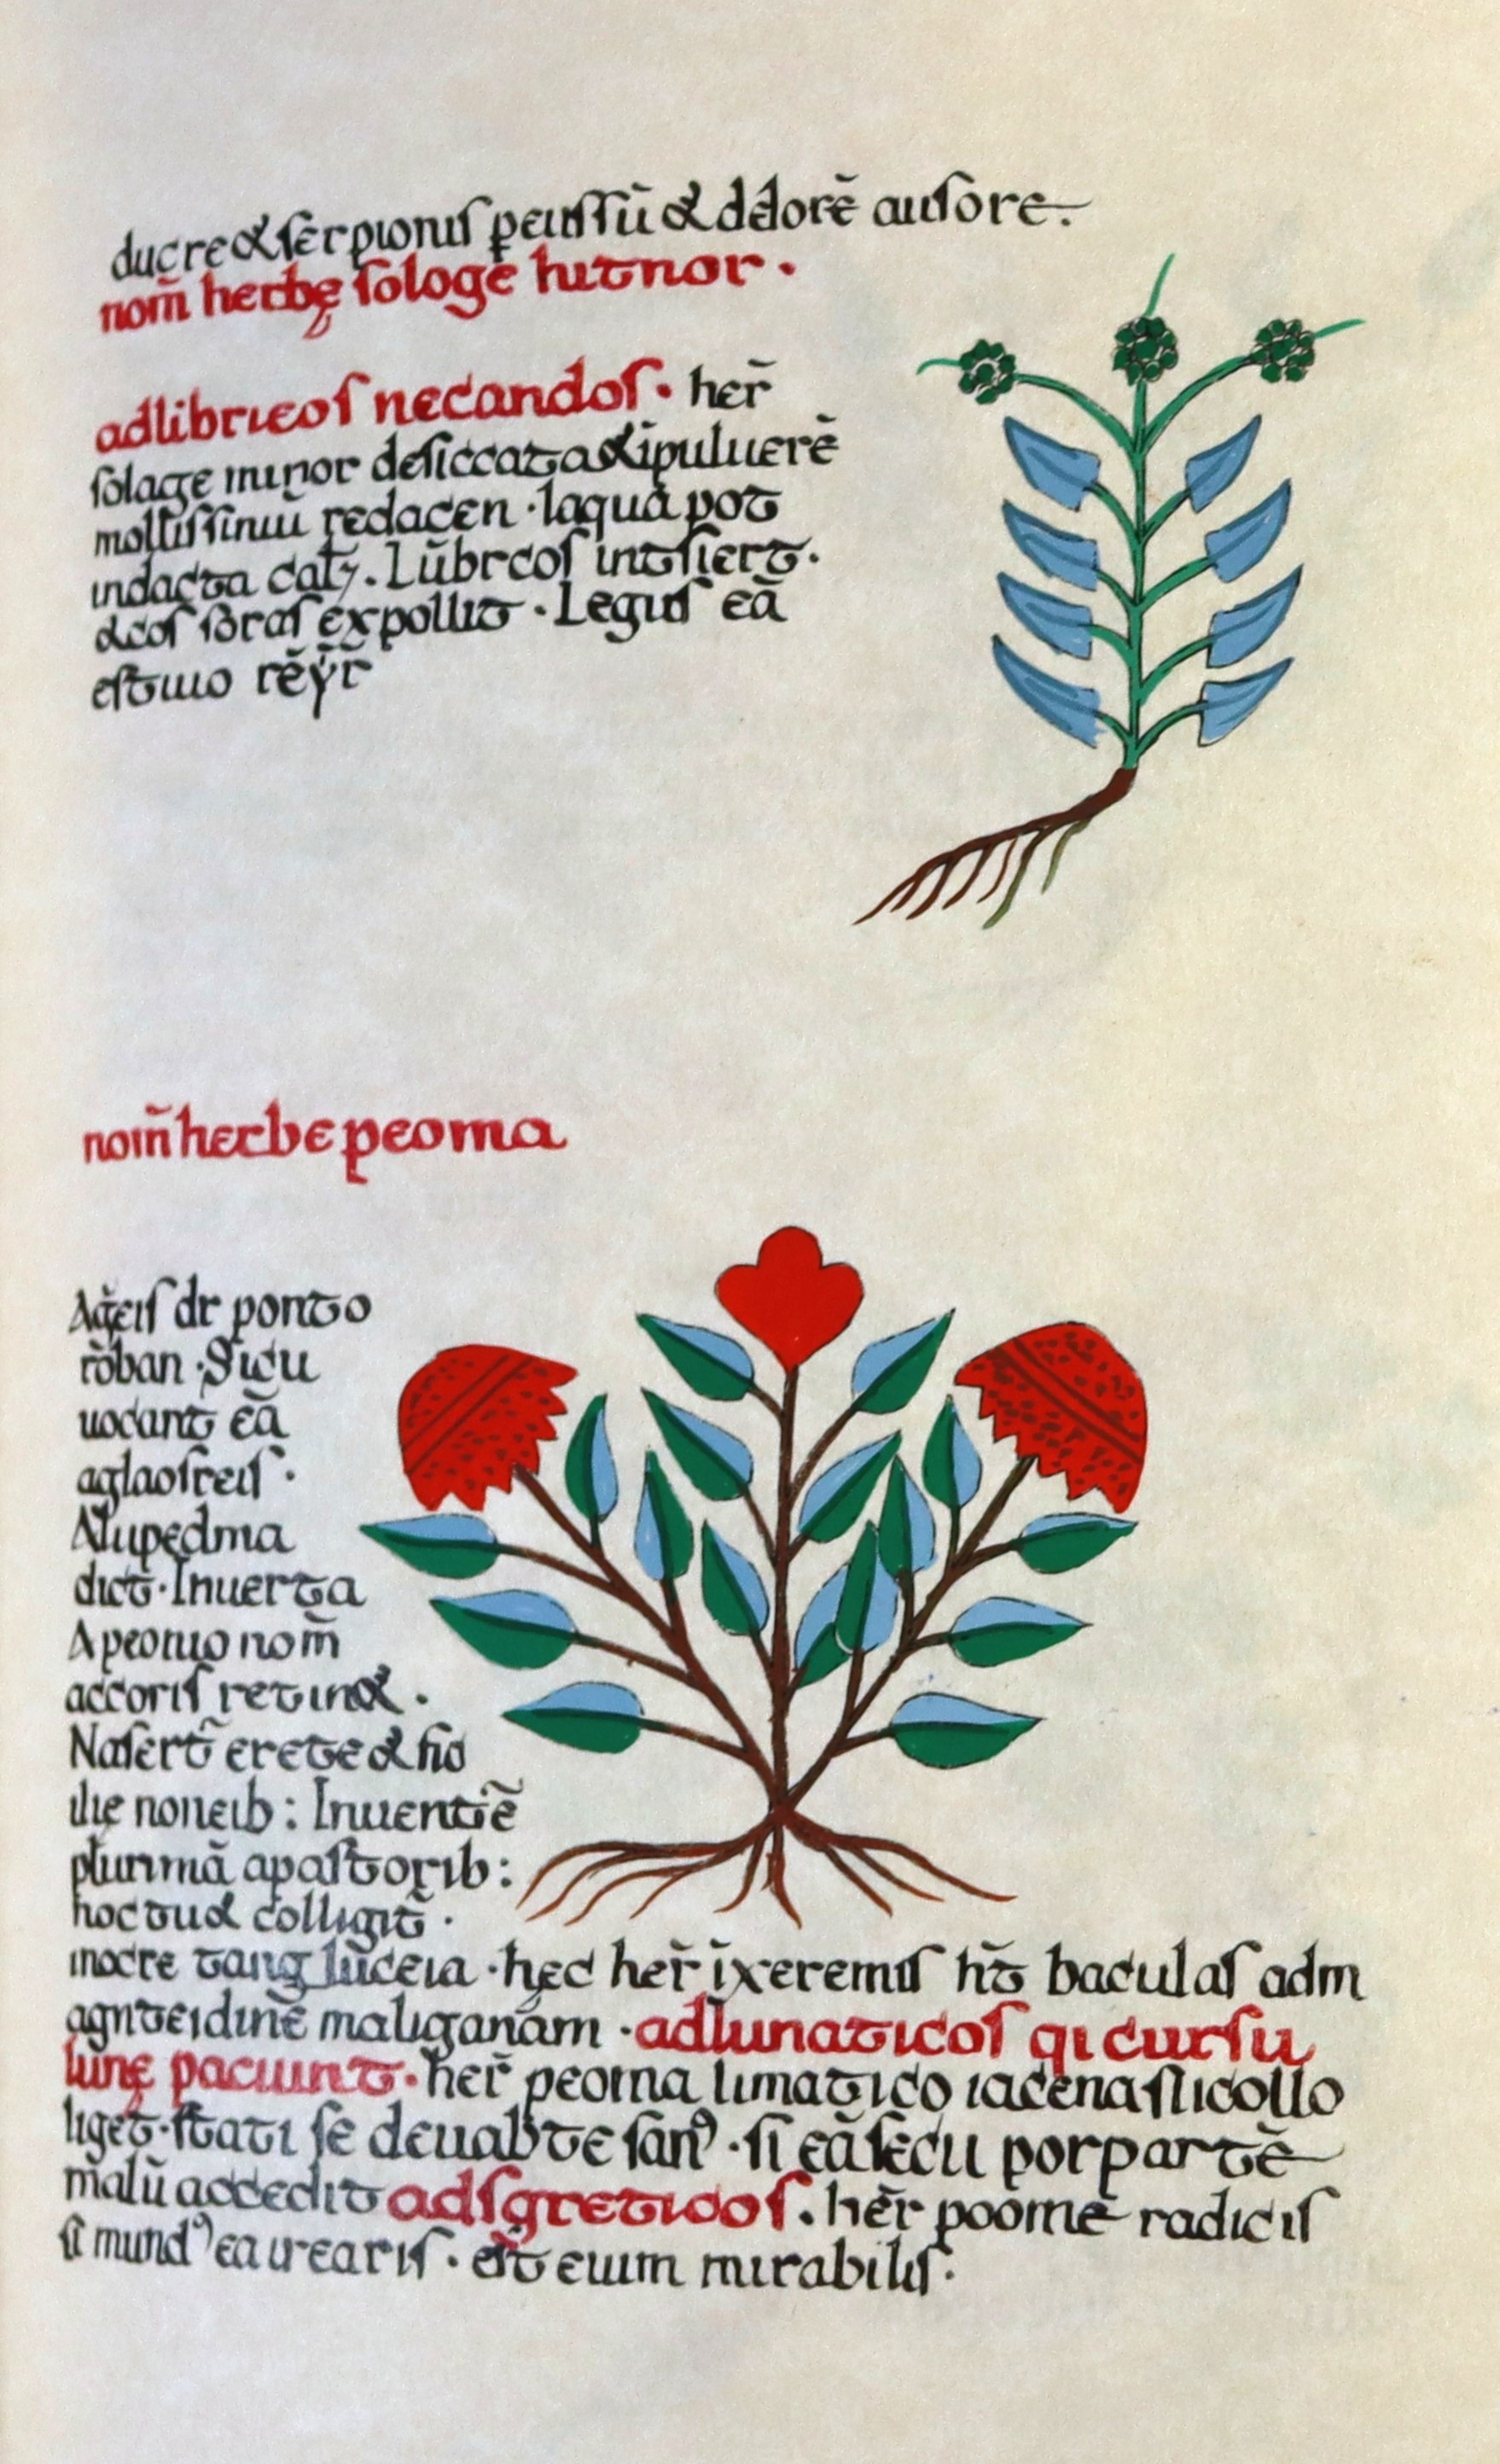 ducre & serpionis peussū & ddorē ausore.
nom̄ herbę sologe hutnor.
adlibricos necandos. her̄
solage minor desiccata & ipuluerē
mollissinui redacen. laqua pot
indacta caty. Lūbrcos intsiert.
&cos foras expollit. Legius eā
estiuo
nom̄ herbe peoma
dr ponto
rōban. Sicu
uocant eā
aglaosreis.
Alupedma
dict̄. Inuerta
Apeonio nom̄
accoris retin&.
Nasert̄ erete & sio
ilię noneib: Inuentiē
plurimā apastorib:
hoctu& colligit̄.
inocre tang lūceia. hęc her̄ ixeremis ht̄ baculas adm
agnteidinē maligānam. adlunaticos qi cursu
lunę paciunt. her̄ peoma limatico iacenasticollo
liget. stati sē deuabte san⁹. si eā sēcu porpartē
malū accedit adsgreticos. hēr poomē radicis
si mund⁹ ea urearis. est euim mirabilis.